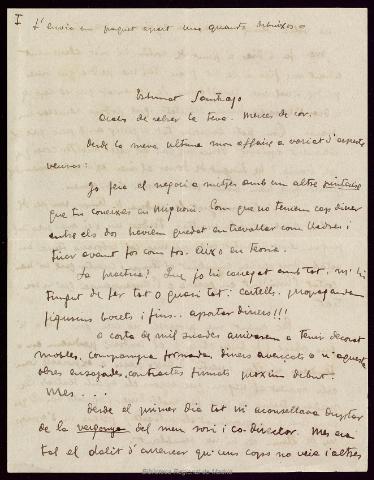 I
T'envio en paquet apart uns quants dibuixos
Estimat Santiago
Acabo de rebre la teva. Merces de cor.
Desde la meva ultima mon affaire a variat d'aspecte
veuras:
Jo feia el negoci a mitges amb un altre
que tu coneixes en Mignoni. Com que no teniem cap diner
entre els dos haviem quedat en travallar com lladres i
tirar avant fos com fos. Aixo en teoria.
La practica? Que jo hi carregat amb tot. M'hi
tingut de fer tot o quasi tot: cartells, propaganda
figurins bocets i fins.. aportar diners!!!
A costa de mil suades arrivarem a tenir decorat
mobles, companyia formada, diners avençats a
obres ensajades, contractes firmats proxim debut.
Mes...
desde el primer dia tot m'aconsellava duptar
de la vergonya del meu soci i co-director. Mes era
tal el dalit d'arrencar qu'uns cops no veia i altres
Biblioteca Regional de Madrid